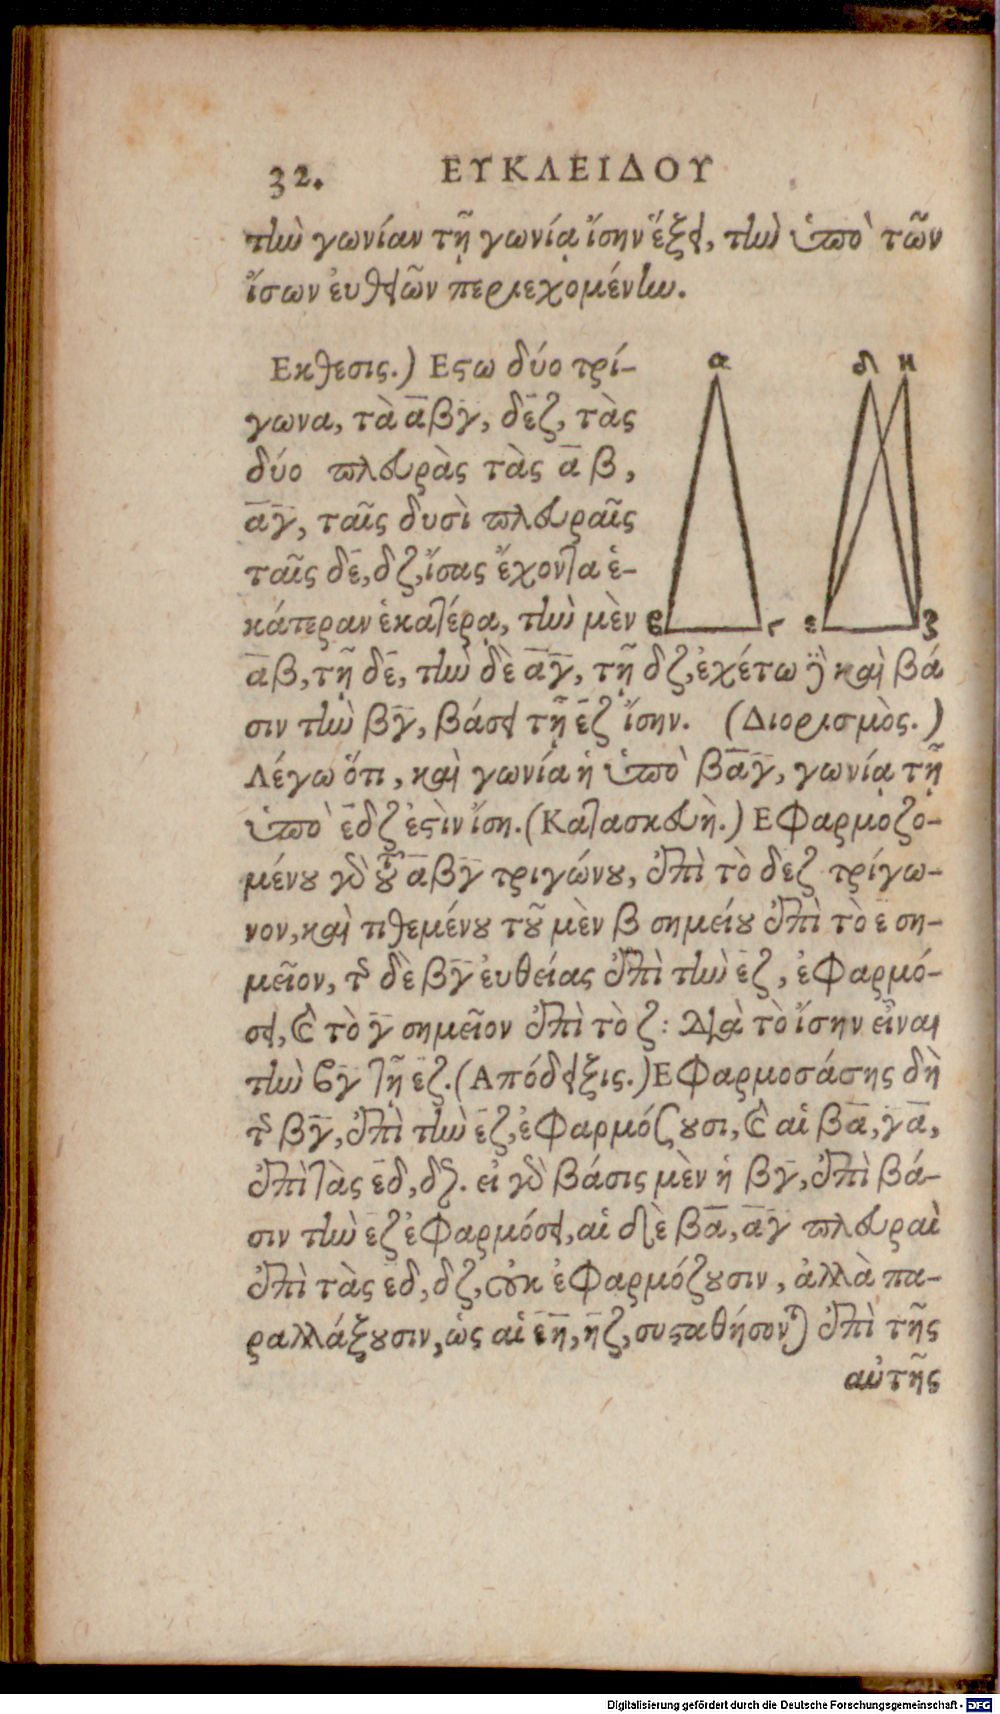 32. ΕΥΚΛΕΙΔΟΥ
τὴν γωνίαν τῇ γωνίᾳ ἴσην ἕξει, τὴν ὑπὸ τῶν
ἴσων ἐυθειῶν περιεχομένην.
Εκθεσις.) Εϛω δύο τρί-
γωνα, τὰ α̅β̅γ̅, δε̅ζ, τὰς
δύο πλευρὰς τὰς α̅β,
α̅γ̅, ταῖς δυσὶ πλευραῖς
ταῖς δε̅, δζ, ἴσας ἔχοντα ἑ-
κάτεραν ἑκατέρᾳ, τὴν μὲν
α̅β, τῇ δε̅, τὴν δὲ α̅γ̅, τῇ δζ, ἐχέτω δὲ καὶ βά
σιν τὴν βγ̅, βάσει τῇ ε̅ζ ἴσην. (Διορισμὸς.)
Λέγω ὅτι, καὶ γωνία ἡ ὑπὸ βα̅γ̅, γωνίᾳ τῇ
ὑπὸ ε̅δζ ἐϛὶν ἴση. (Κατασκευὴ.) Εφαρμοζο-
μένου γὸ τοῦ α̅βγ̅ τριγώνου, ἐπὶ τὸ δεζ τρίγω-
νον, καὶ τιθεμένου τοῦ μὲν β σημείου ἐπὶ τὸ ε̅ ση-
μεῖον, τῆς δὲ βγ̅ ἐυθείας ἐπὶ τὴν ε̅ζ, ἐφαρμό-
σει, καὶ τὸ γ̅ σημεῖον ἐπὶ τὸ ζ: Διὰ τὸ ἴσην εἶναι
τὴν βγ̅ τῇ ε̅ζ. (Απόδειξις.) Εφαρμοσάσης δὴ
τῆς βγ̅, ἐπὶ τὴν ε̅ζ, ἐφαρμόζουσι, καὶ αἱ βα̅, γ̅α̅,
ἐπὶ τὰς ε̅δ, δζ. εἰ γὸ βάσις μὲν ἡ βγ̅, ἐπὶ βά-
σιν τὴν ε̅ζ ἐφαρμόσει, αἱ δὲ βα̅, α̅γ̅ πλευραὶ
ἐπὶ τὰς ε̅δ, δζ, οὐκ ἐφαρμόζουσιν, ἀλλὰ πα-
ραλλάξουσιν, ὡς αἱ ε̅η̅, η̅ζ, συϛαθήσονται ἐπὶ τῆς
αὐτῆς
α
δ η
β γ ε ζ
Digitalisierung gefördert durch die Deutsche Forschungsgemeinschaft - DFG